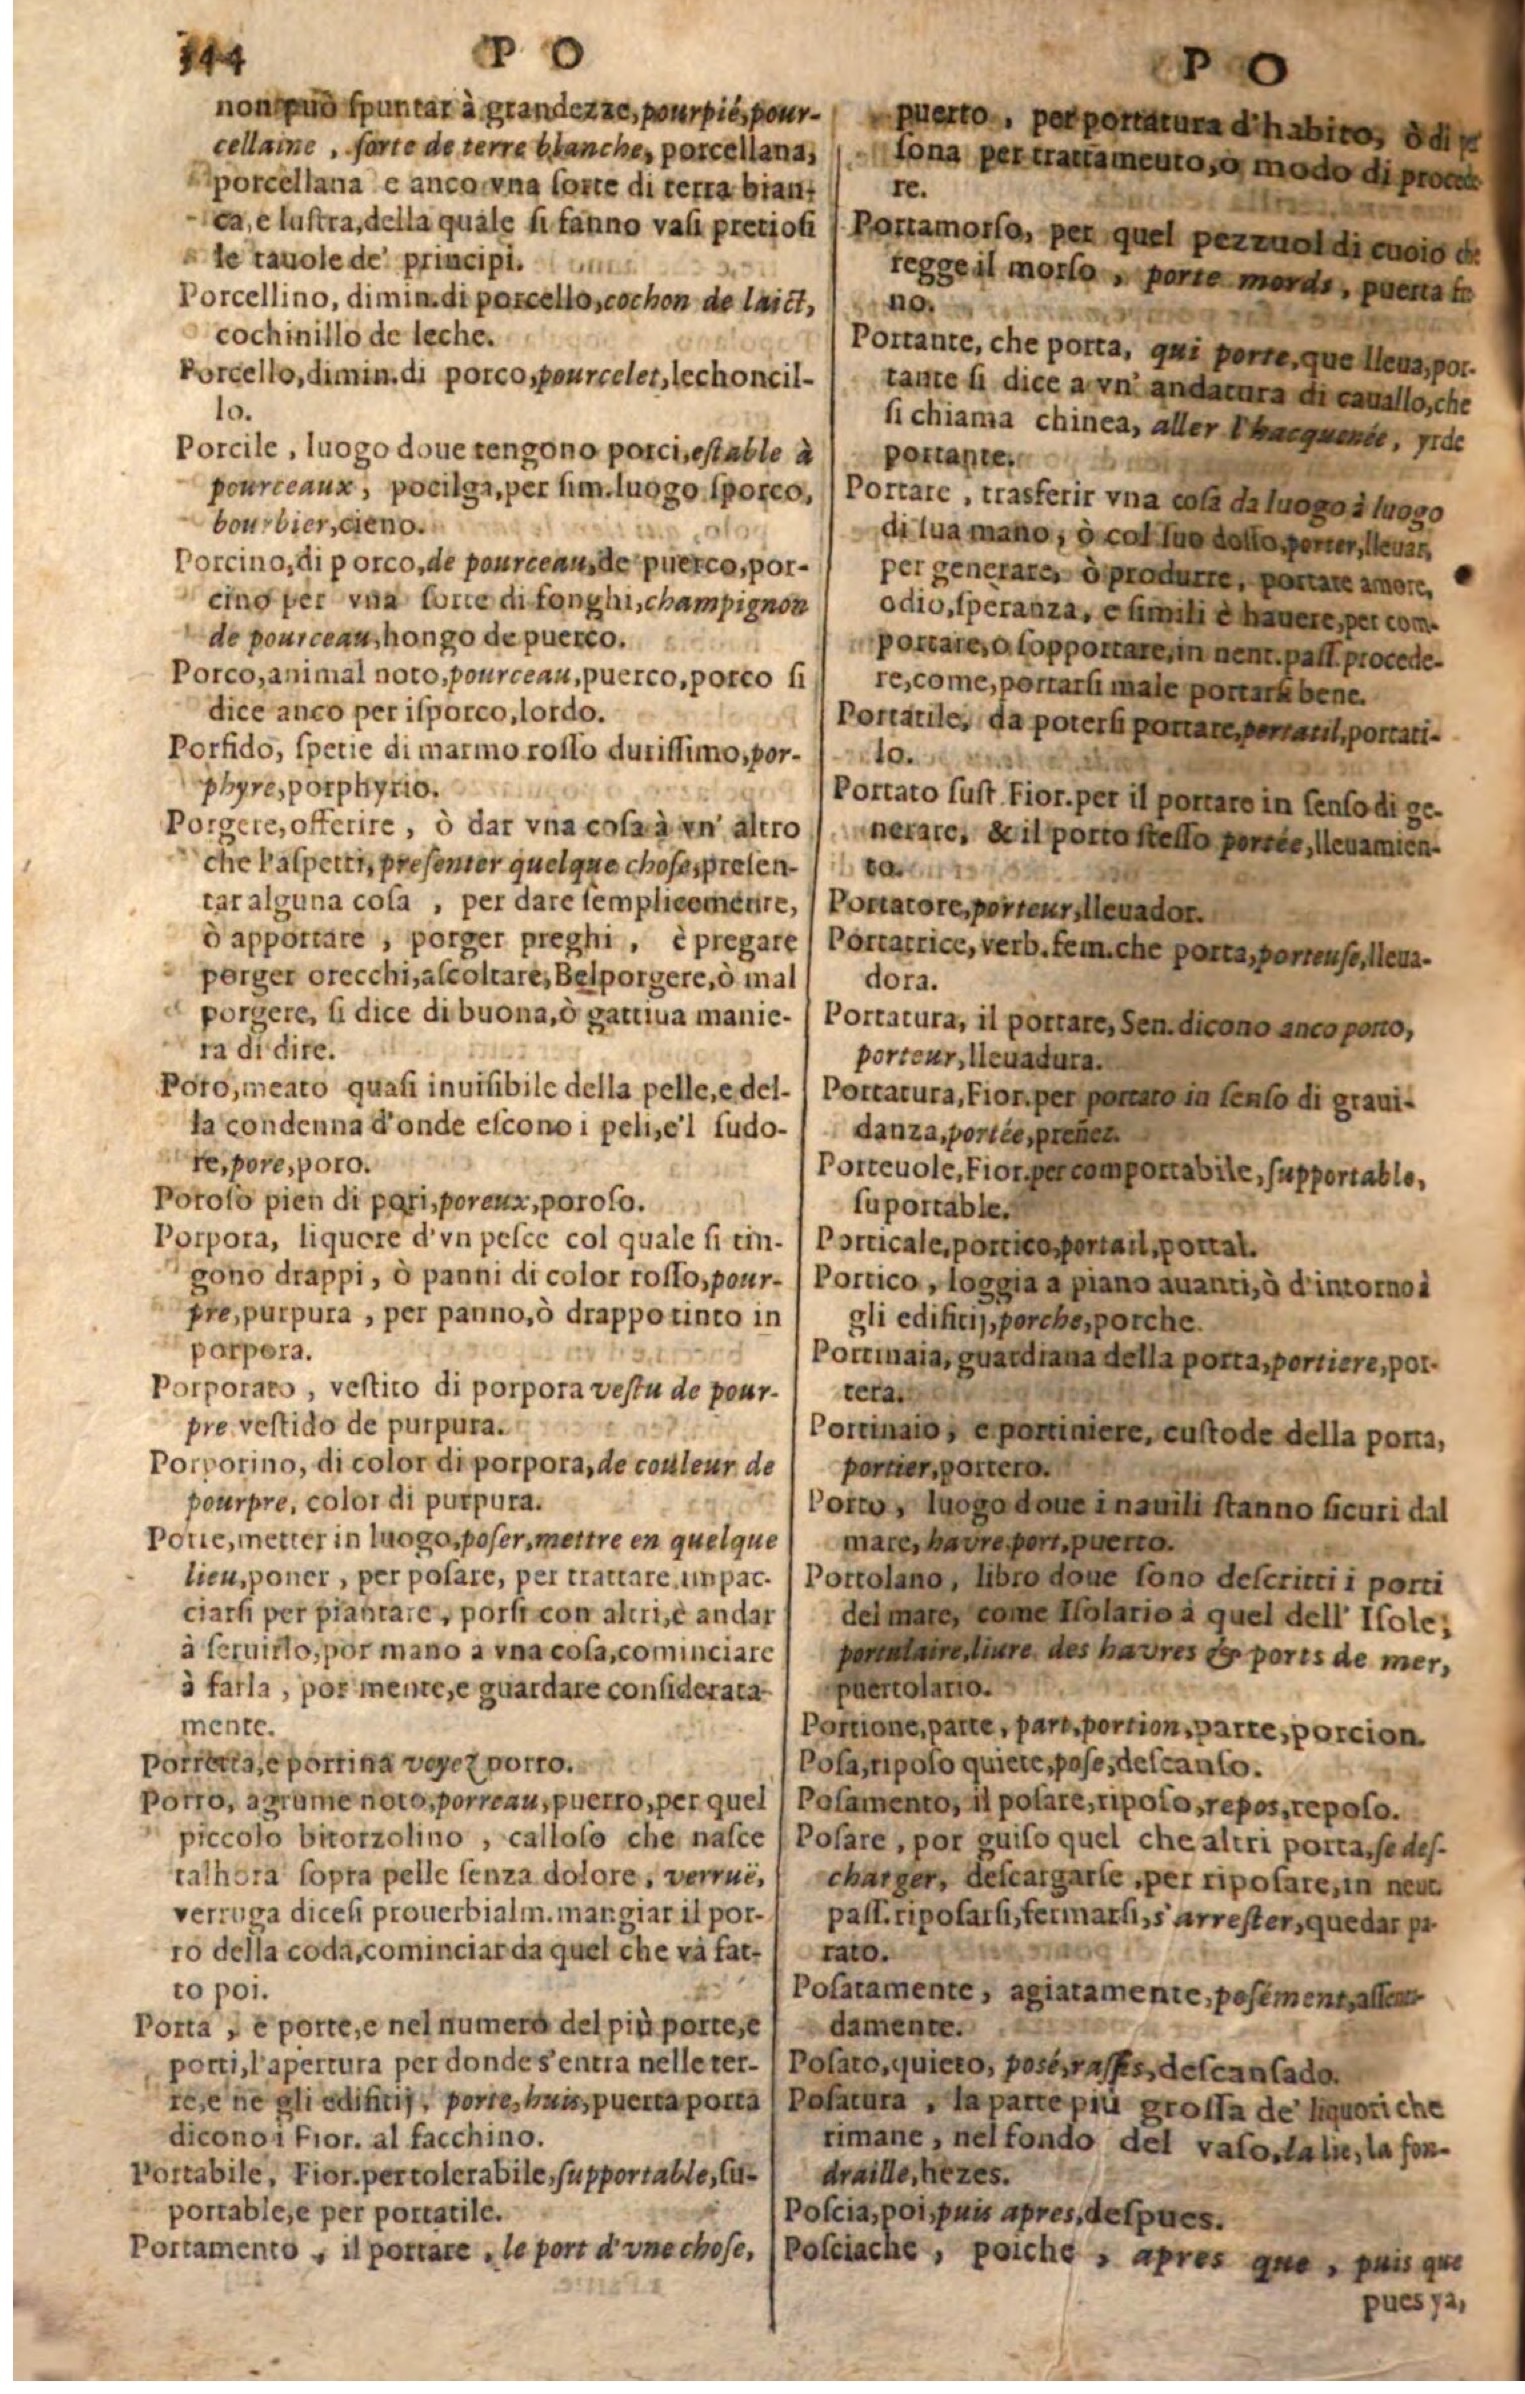 344 P O
non può ſpuntar à grandezze, pourpié, pour-
cellaine , ſorte de terre blanche, porcellana,
porcellana e anco vna ſorte di terra bian-
ca, e luſtra, della quale ſi fanno vaſi pretioſi
le tauole de' principi.
Porcellino, dimin. di porcello, cochon de laict,
cochinillo de leche.
Porcello, dimin. di porco, pourcelet, lechoncil-
lo.
Porcile , luogo doue tengono porci, eſtable à
pourceaux, pocilga, per ſim. luogo ſporco,
bourbier, cieno.
Porcino, di porco, de pourceau, de puerco, por-
cino per vna ſorte di fonghi, champignon
de pourceau, hongo de puerco.
Porco, animal noto, pourceau, puerco, porco ſi
dice anco per iſporco, lordo.
Porfido, ſpetie di marmo roſſo duriſſimo, por-
phyre, porphyrio.
Porgere, offerire , ò dar vna coſa à vn' altro
che l'aſpetti, preſenter quelque choſe, preſen-
tar alguna coſa , per dare ſemplicemente,
ò apportare , porger preghi , è pregare
porger orecchi, aſcoltare, Belporgere, ò mal
porgere, ſi dice di buona, ò gattiua manie-
ra di dire.
Poro, meato quaſi inuiſibile della pelle, e del-
la condenna d'onde eſcono i peli, e'l ſudo-
re, pore, poro.
Poroſo pien di pori, poreux, poroſo.
Porpora, liquore d'vn peſce col quale ſi tin-
gono drappi, ò panni di color roſſo, pour-
pre, purpura , per panno, ò drappo tinto in
porpora.
Porporato , veſtito di porpora veſtu de pour-
pre veſtido de purpura.
Porporino, di color di porpora, de couleur de
pourpre, color di purpura.
Porre, metter in luogo, poſer, mettre en quelque
lieu, poner , per poſare, per trattare impac-
ciarſi per piantare, porſi con altri, è andar
à ſeruirlo, por mano a vna coſa, cominciare
à farla , por mente, e guardare conſiderata-
mente.
Porretta, e porrina voyez porro.
Porro, agrume noto, porreau, puerro, per quel
piccolo bitorzolino , calloſo che naſce
talhora ſopra pelle ſenza dolore, verruë,
verruga diceſi prouerbialm. mangiar il por-
ro della coda, cominciar da quel che và fat-
to poi.
Porta , e porte, e nel numero del più porte, e
porti, l'apertura per donde s'entra nelle ter-
re, e ne gli edifitij, porte, huis, puerta porta
dicono i Fior. al facchino.
Portabile, Fior. per tolerabile, ſupportable, ſu-
portable, e per portatile.
Portamento , il portare , le port d'vne choſe,
P O
puerto , per portatura d'habito, ò di per
ſona per trattamento, o modo di procede
re.
Portamorſo, per quel pezzuol di cuoio che
regge il morſo , porte mords, puerta fre
no.
Portante, che porta, qui porte, que lleua, por-
tante ſi dice a vn' andatura di cauallo, che
ſi chiama chinea, aller l'hacquenée, yrde
portante.
Portare , trasferir vna coſa da luogo à luogo
di ſua mano, ò col ſuo doſſo, porter, lleuar,
per generare, ò produrre, portare amore,
odio, ſperanza, e ſimili è hauere, per com-
portare, o ſopportare, in neut. paſſ. procede-
re, come, portarſi male portarſi bene.
Portatile, da poterſi portare, portatil, portati-
lo.
Portato ſuſt. Fior. per il portare in ſenſo di ge-
nerare, & il porto ſteſſo portée, lleuamien-
to.
Portatore, porteur, lleuador.
Portatrice, verb. fem. che porta, porteuſe, lleua-
dora.
Portatura, il portare, Sen. dicono anco porto,
porteur, lleuadura.
Portatura, Fior. per portato in ſenſo di graui-
danza, portée, preñez.
Porteuole, Fior. per comportabile, ſupportable,
ſuportable.
Porticale, portico, portail, portal.
Portico , loggia a piano auanti, ò d'intorno à
gli edifitij, porche, porche.
Portinaia, guardiana della porta, portiere, por-
tera.
Portinaio, e portiniere, cuſtode della porta,
portier, portero.
Porto, luogo doue i nauili ſtanno ſicuri dal
mare, havre, port, puerto.
Portolano, libro doue ſono deſcritti i porti
del mare, come Iſolario à quel dell' Iſole;
portulaire, liure des havres & ports de mer,
puertolario.
Portione, parte , part, portion, parte, porcion.
Poſa, ripoſo quiete, poſe, deſcanſo.
Poſamento, il poſare, ripoſo, repos, repoſo.
Poſare , por guiſo quel che altri porta, ſe deſ-
charger, deſcargarſe , per ripoſare, in neut.
paſſ. ripoſarſi, fermarſi, s'arreſter, quedar pa-
rato.
Poſatamente, agiatamente, poſément, aſſen-
damente.
Poſato, quieto, posé, raſſis, deſcanſado.
Poſatura , la parte più groſſa de' liquori che
rimane, nel fondo del vaſo, la lie, la fon-
draille, hezes.
Poſcia, poi, puis apres, deſpues.
Poſciache, poiche , apres que , puis que
pues ya,